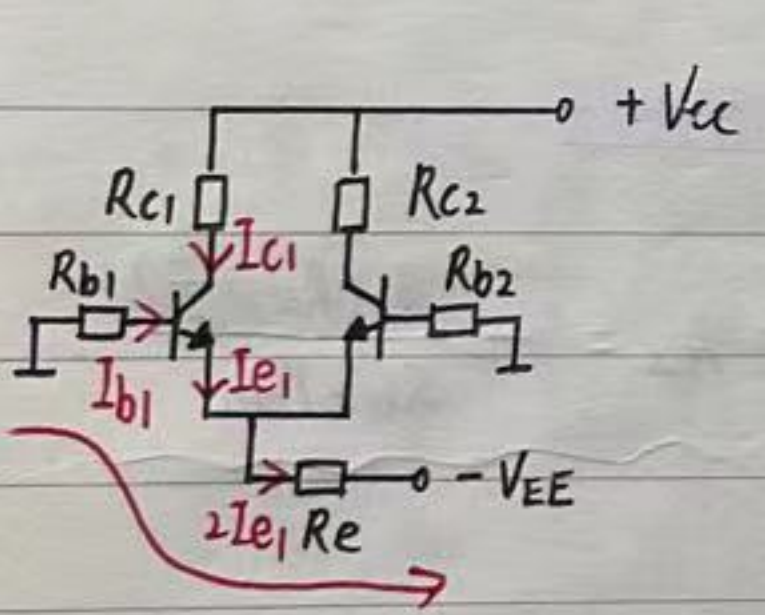 +Vcc
Rc1
Rc2
Ic1
Rb1
Rb2
Ib1
Ie1
-VEE
2Ie1
Re